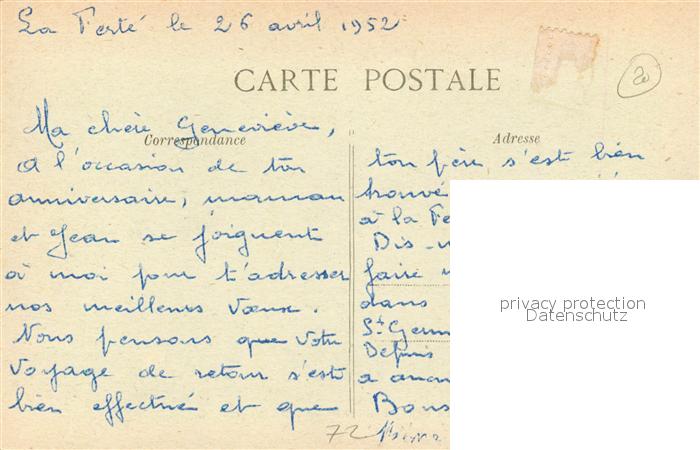 La Ferté le 26 avril 1952
20
CARTE POSTALE
Correspondance
Adresse
Ma chère Geneviève,
A l'occasion de ton
anniversaire, maman
et Jean se joignent
à moi pour t'adresser
nos meilleurs vœux.
Nous pensons que votre
voyage de retour s'est
bien effectué et que
ton père s'est bien
trouvé
à la Fe
Dis-
faire
dans
St Germ
Depuis
a aucun
Bons
72
privacy protection
Datenschutz